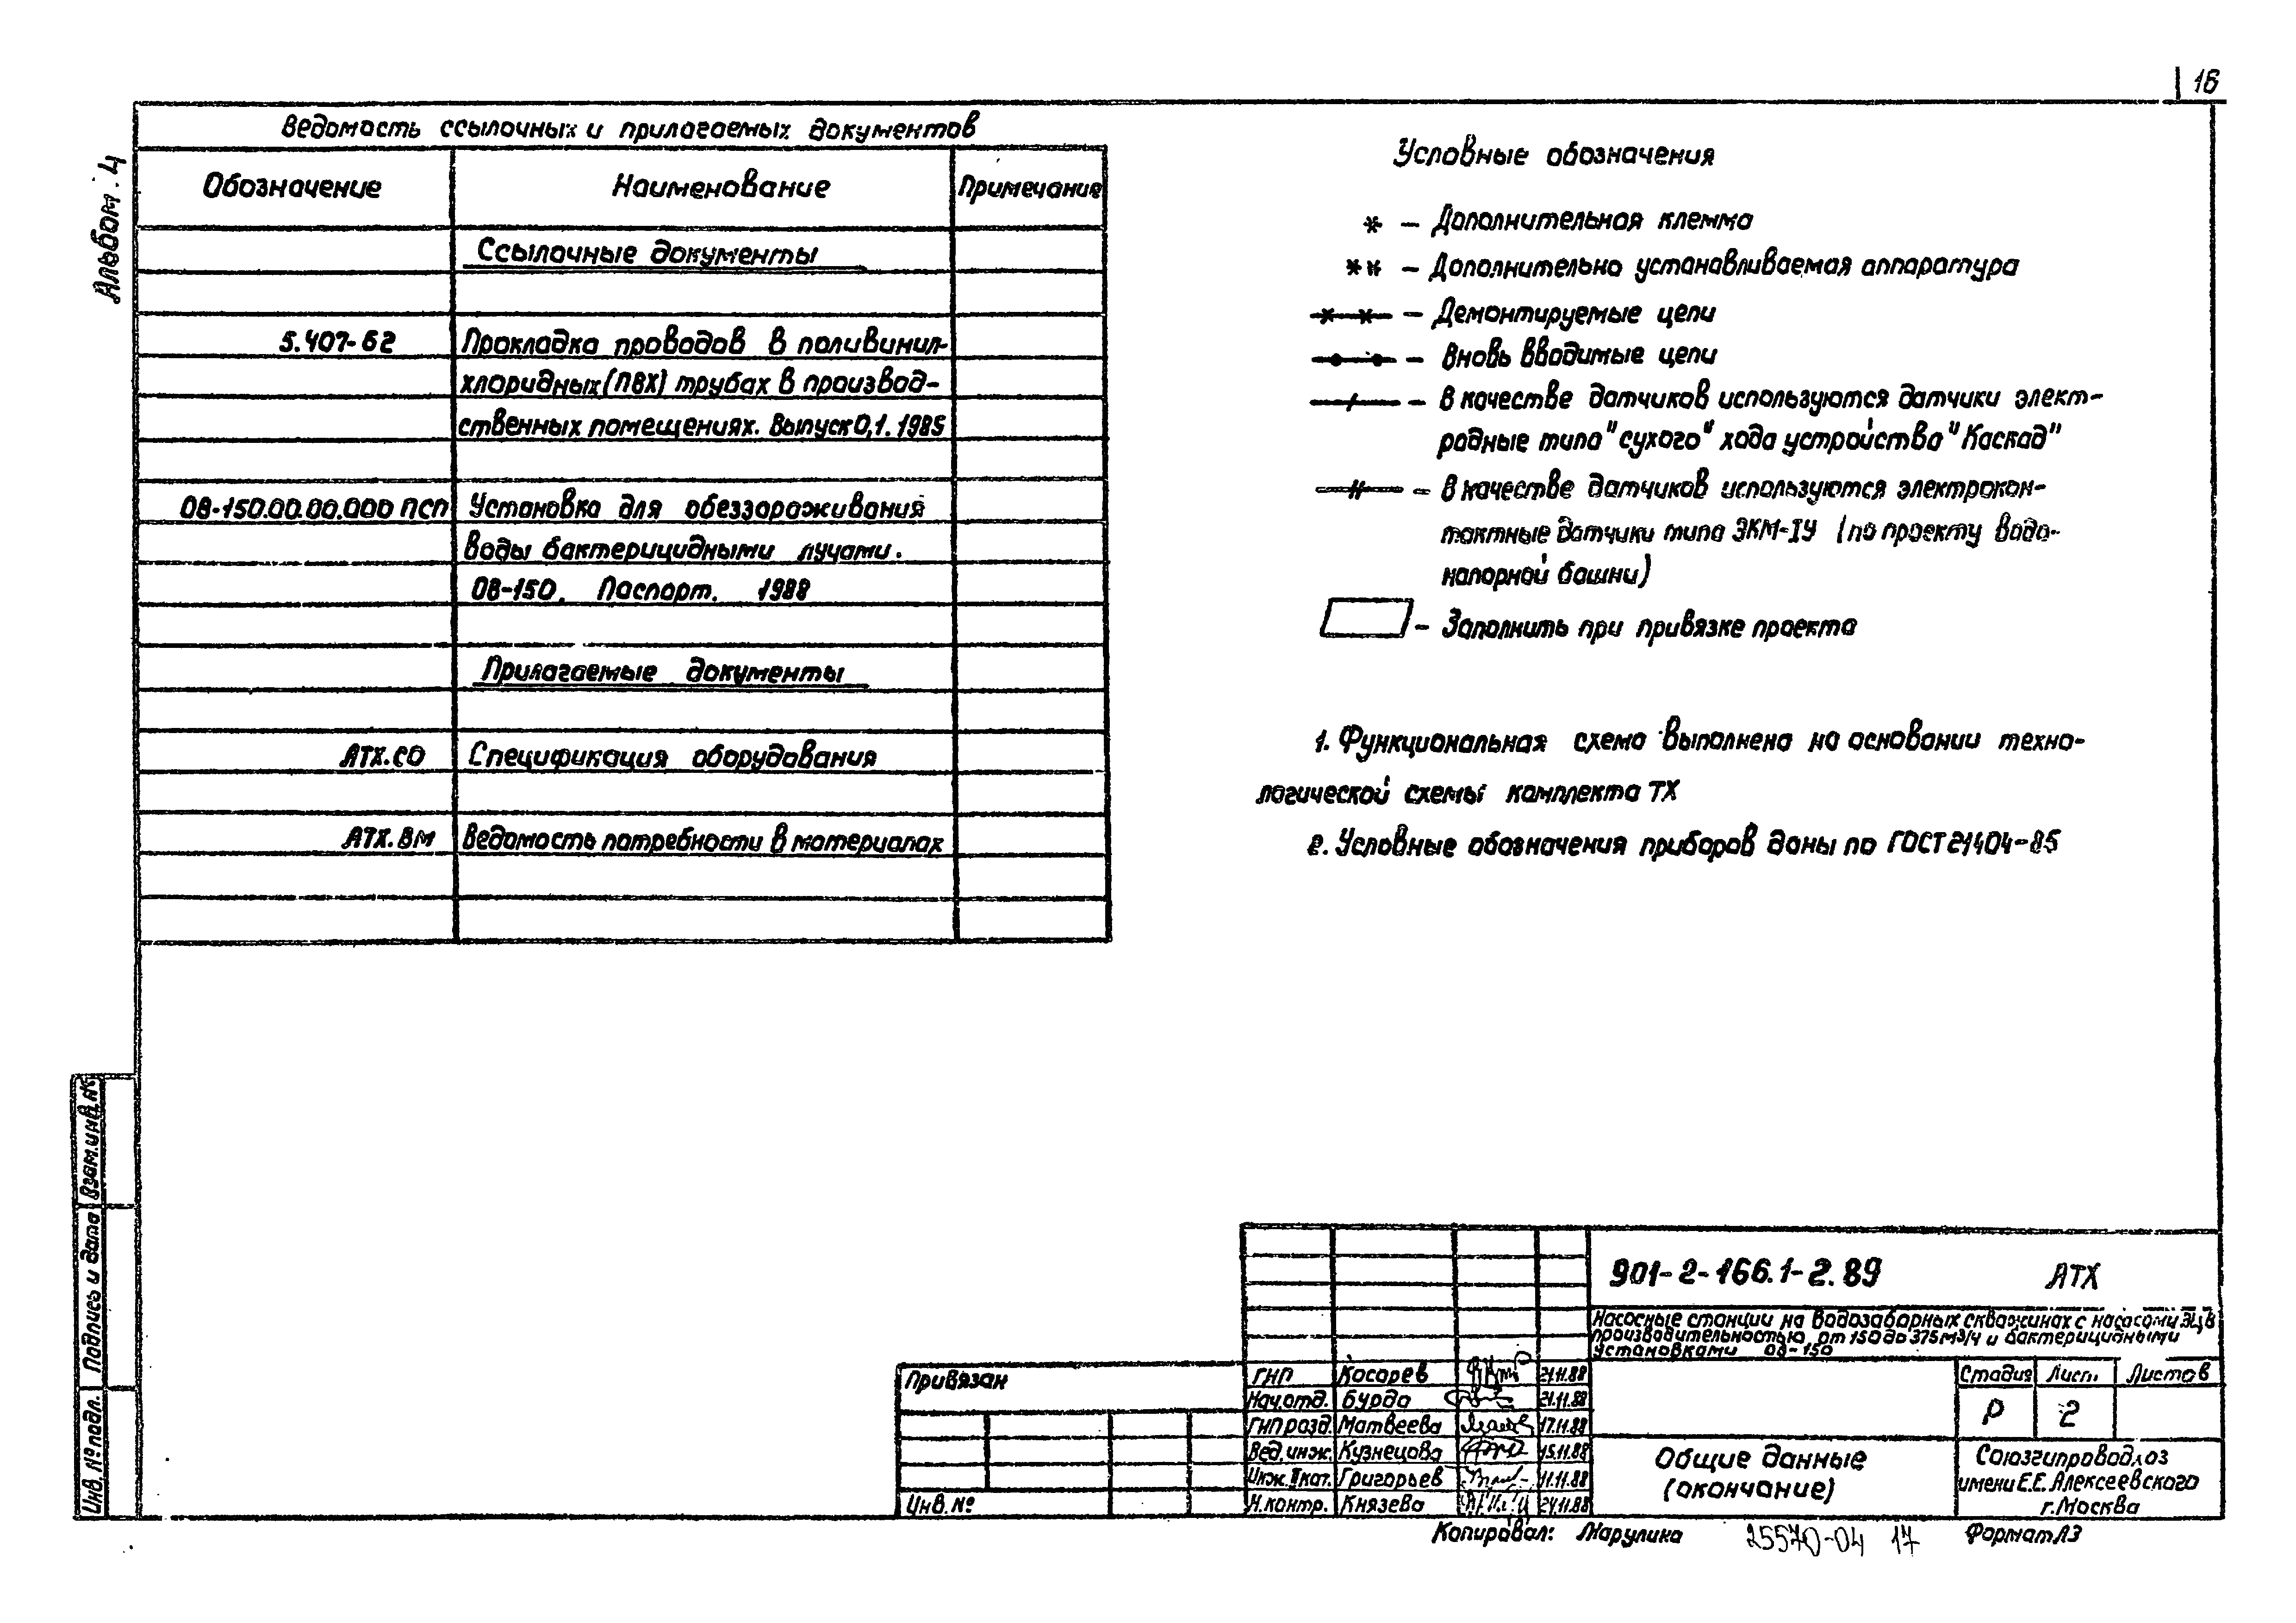 16
Альбом. 4
Ведомость ссылочных и прилагаемых документов
Обозначение Наименование Примечание
Ссылочные документы
5.407-62 Прокладка проводов в поливинил-
хлоридных (ПВХ) трубах в производ-
ственных помещениях. Выпуск 0,1. 1985
ОВ-150.00.00.000 ПСП Установка для обеззараживания
воды бактерицидными лучами.
ОВ-150. Паспорт. 1988
Прилагаемые документы
АТХ.СО Спецификация оборудования
АТХ.ВМ Ведомость потребности в материалах
Условные обозначения
* – Дополнительная клемма
** – Дополнительно устанавливаемая аппаратура
– Демонтируемые цепи
– Вновь вводимые цепи
– В качестве датчиков используются датчики элект-
родные типа "сухого" хода устройства "Каскад"
– В качестве датчиков используются электрокон-
тактные датчики типа ЭКМ-IУ (по проекту водо-
напорной башни)
– Заполнить при привязке проекта
1. Функциональная схема выполнена на основании техно-
логической схемы комплекта ТХ
2. Условные обозначения приборов даны по ГОСТ 21404-85
Взам. инв. №
Подпись и дата
Инв. № подл.
901-2-166.1-2.89 АТХ
Насосные станции на водозаборных скважинах с насосами ЭЦВ
производительностью от 150 до 375 м3/ч и бактерицидными
установками ОВ-150
Привязан
Инв. №
ГНП Косарев 21.11.88
Нач.отд. Бурда 21.11.88
ГНП разд. Матвеева 17.11.88
Вед. инж. Кузнецова 15.11.88
Инж. II кат. Григорьев 11.11.88
Н.контр. Князева 24.11.88
Стадия Лист. Листов
Р 2
Общие данные
(окончание)
Союзгипроводхоз
имени Е.Е. Алексеевского
г. Москва
Копировал: Марулика 25570-04 17 Формат А3